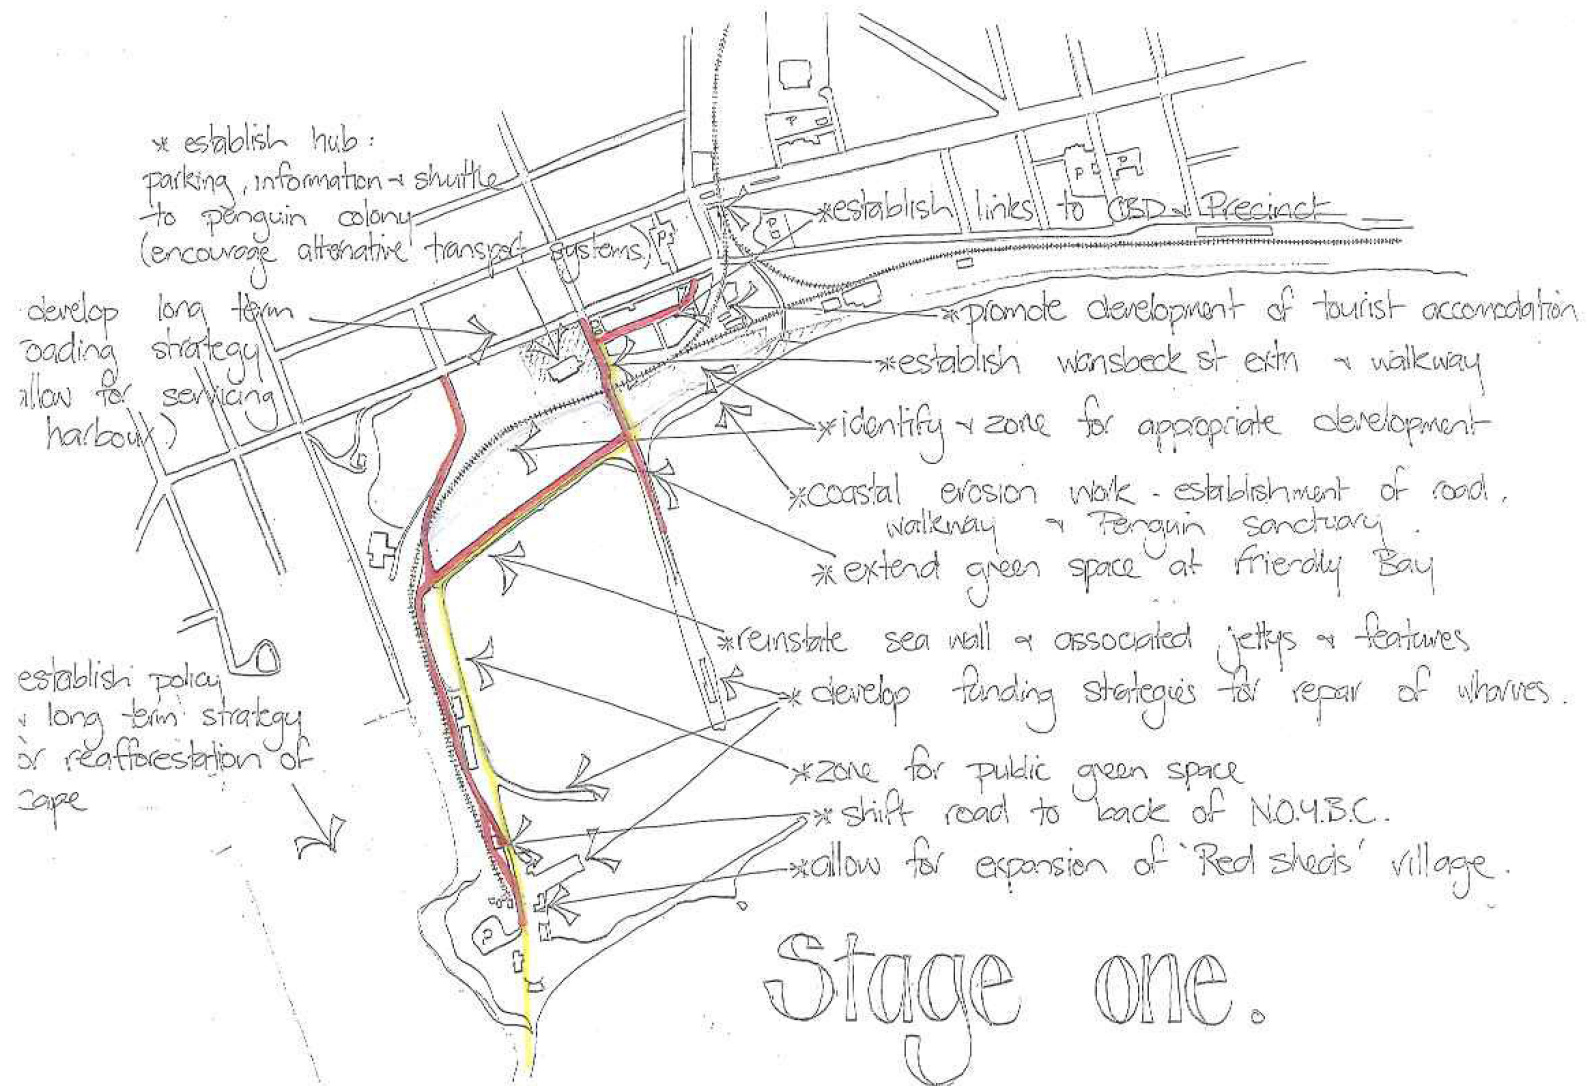 * establish hub:
parking, information & shuttle
to penguin colony
(encourage alternative transport systems)
develop long term
oading strategy
allow for servicing
harbour)
establish policy
& long term strategy
or reafforestation of
cape
*establish links to CBD & Precinct
*promote development of tourist accomodation
*establish wansbeck st extn & walkway
*identify & zone for appropriate development
*coastal erosion work - establishment of road.
walkway & Penguin sanctuary.
*extend green space at friendly Bay
*reinstate sea wall & associated jettys & features
* develop funding strategies for repair of wharves.
*zone for public green space
* shift road to back of N.O.Y.B.C.
*allow for expansion of 'Red sheds' village.
P
P
P
P
P
P
Stage one.